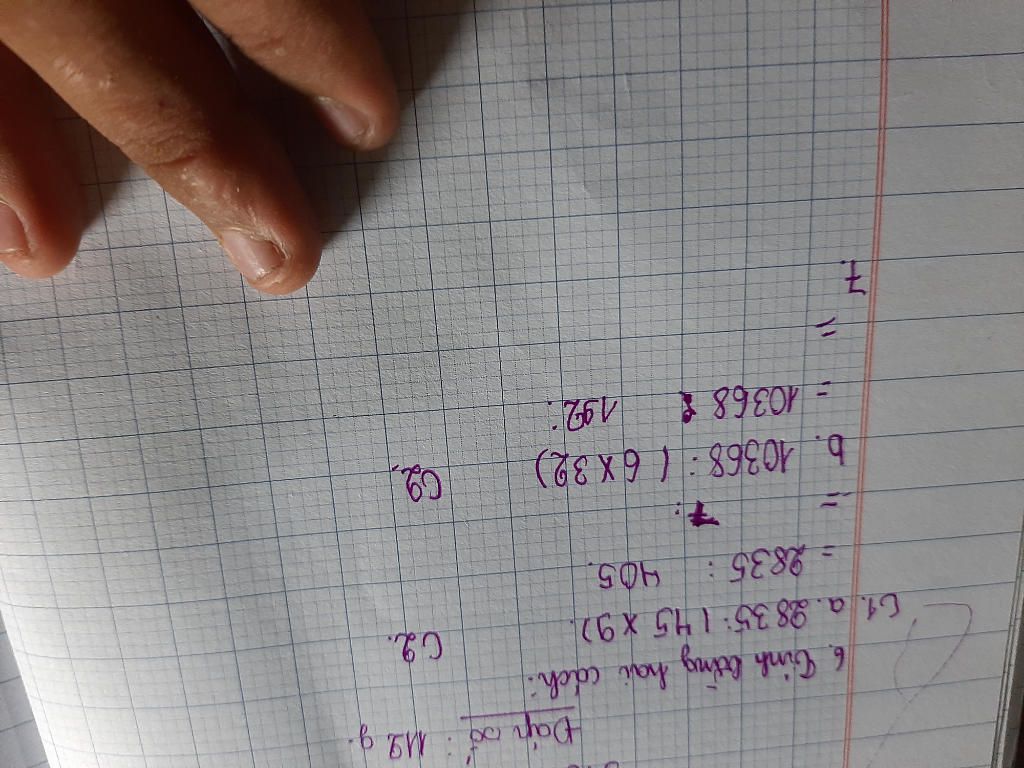 Đáp số: 112 g.
6. Tính bằng hai cách:
C1. a. 2835: (45 x 9). C2.
= 2835 : 405.
= 7.
b. 10368: (6 x 32) C2.
= 10368 : 192.
=
7.